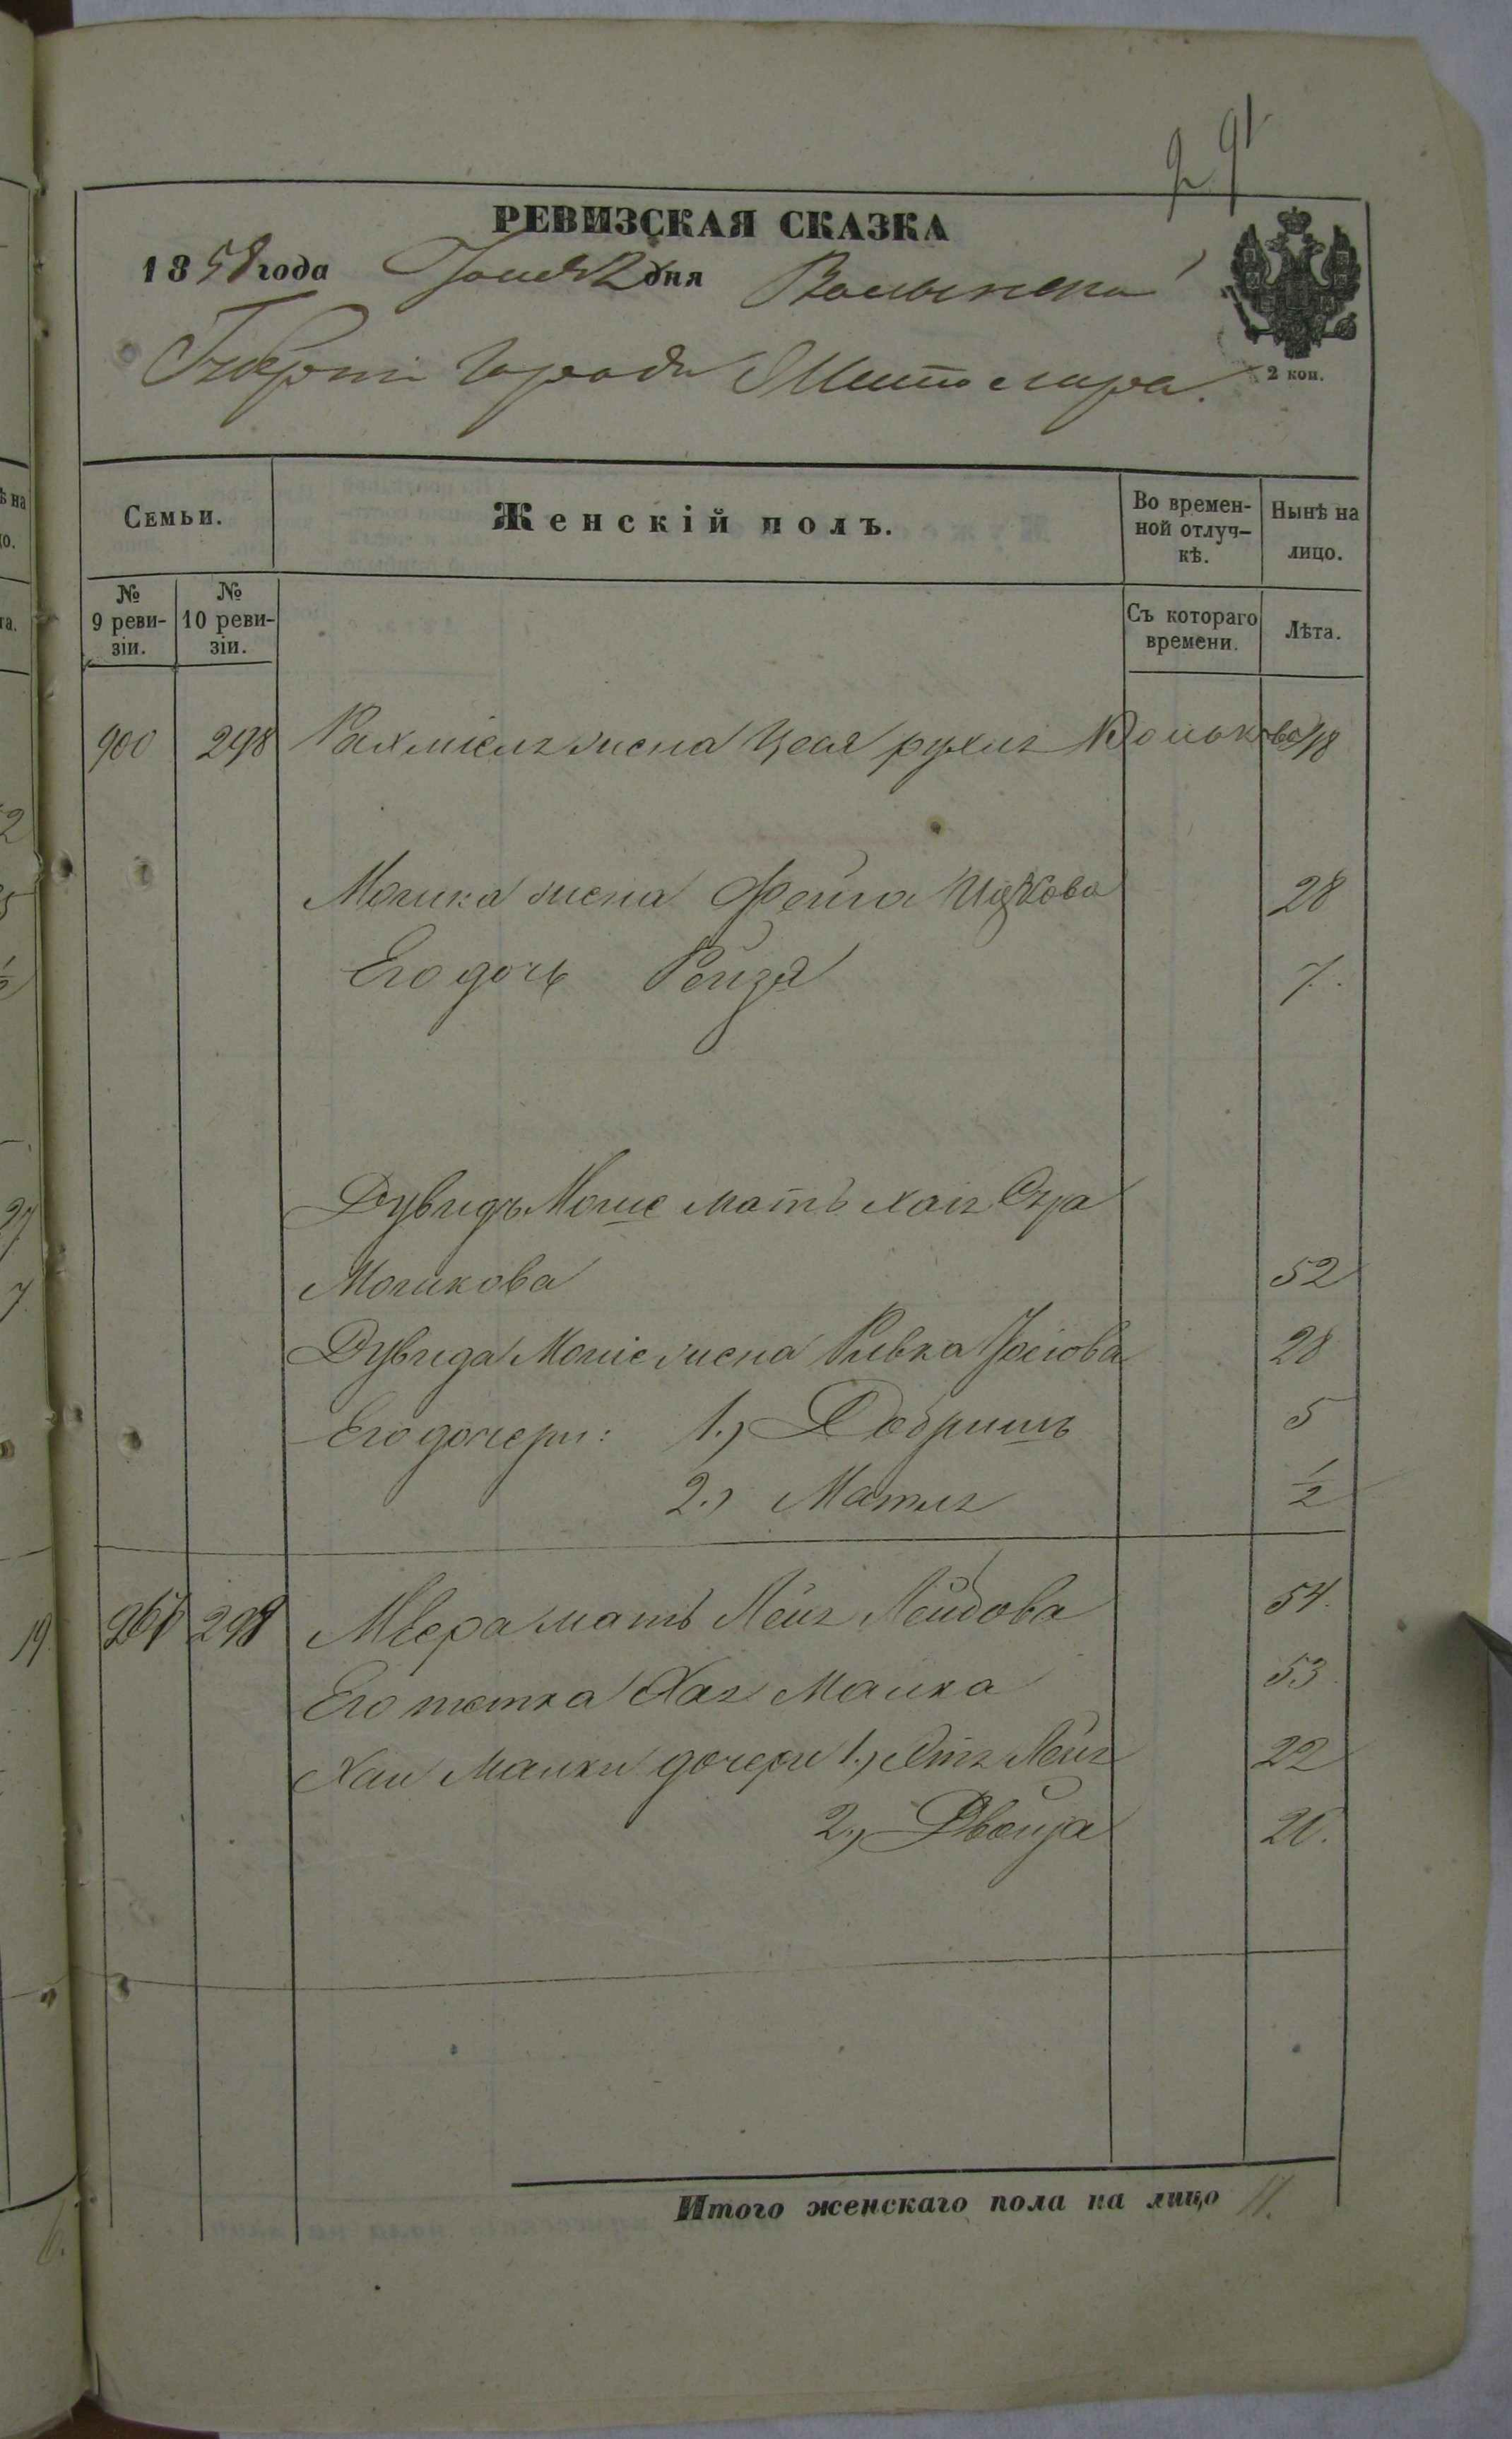 291
РЕВИЗСКАЯ СКАЗКА
1858 года Іюня 2 дня Волынской
Губерніи города Житомира.
2 коп.
Семьи.
Женскій полъ.
Во времен-
ной отлуч-
кѣ.
Нынѣ на
лицо.
№
9 реви-
зіи.
№
10 реви-
зіи.
Съ котораго
времени.
Лѣта.
900 298 Рахміеля жена Цеся рухля Волькова 48
Мошка жена Фейга Ицкова 28
Его дочь Рейзя 7.
Дувидъ Моше мать Хая Сура
Мошкова 52
Дувида Моше жена Ривка Іосіова 28
Его дочери: 1.) Добришъ 5
2.) Матля 1/2
299 Меера мать Лея Лейбова 54.
Его тетка Хая Малка 53.
Хаи Малки дочери 1.) Лея 22
2.) Двойра 20.
Итого женскаго пола на лицо 11.